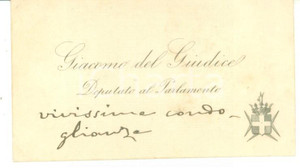 Giacomo del Giudice
Deputato al Parlamento
vivissime condo-
glianze